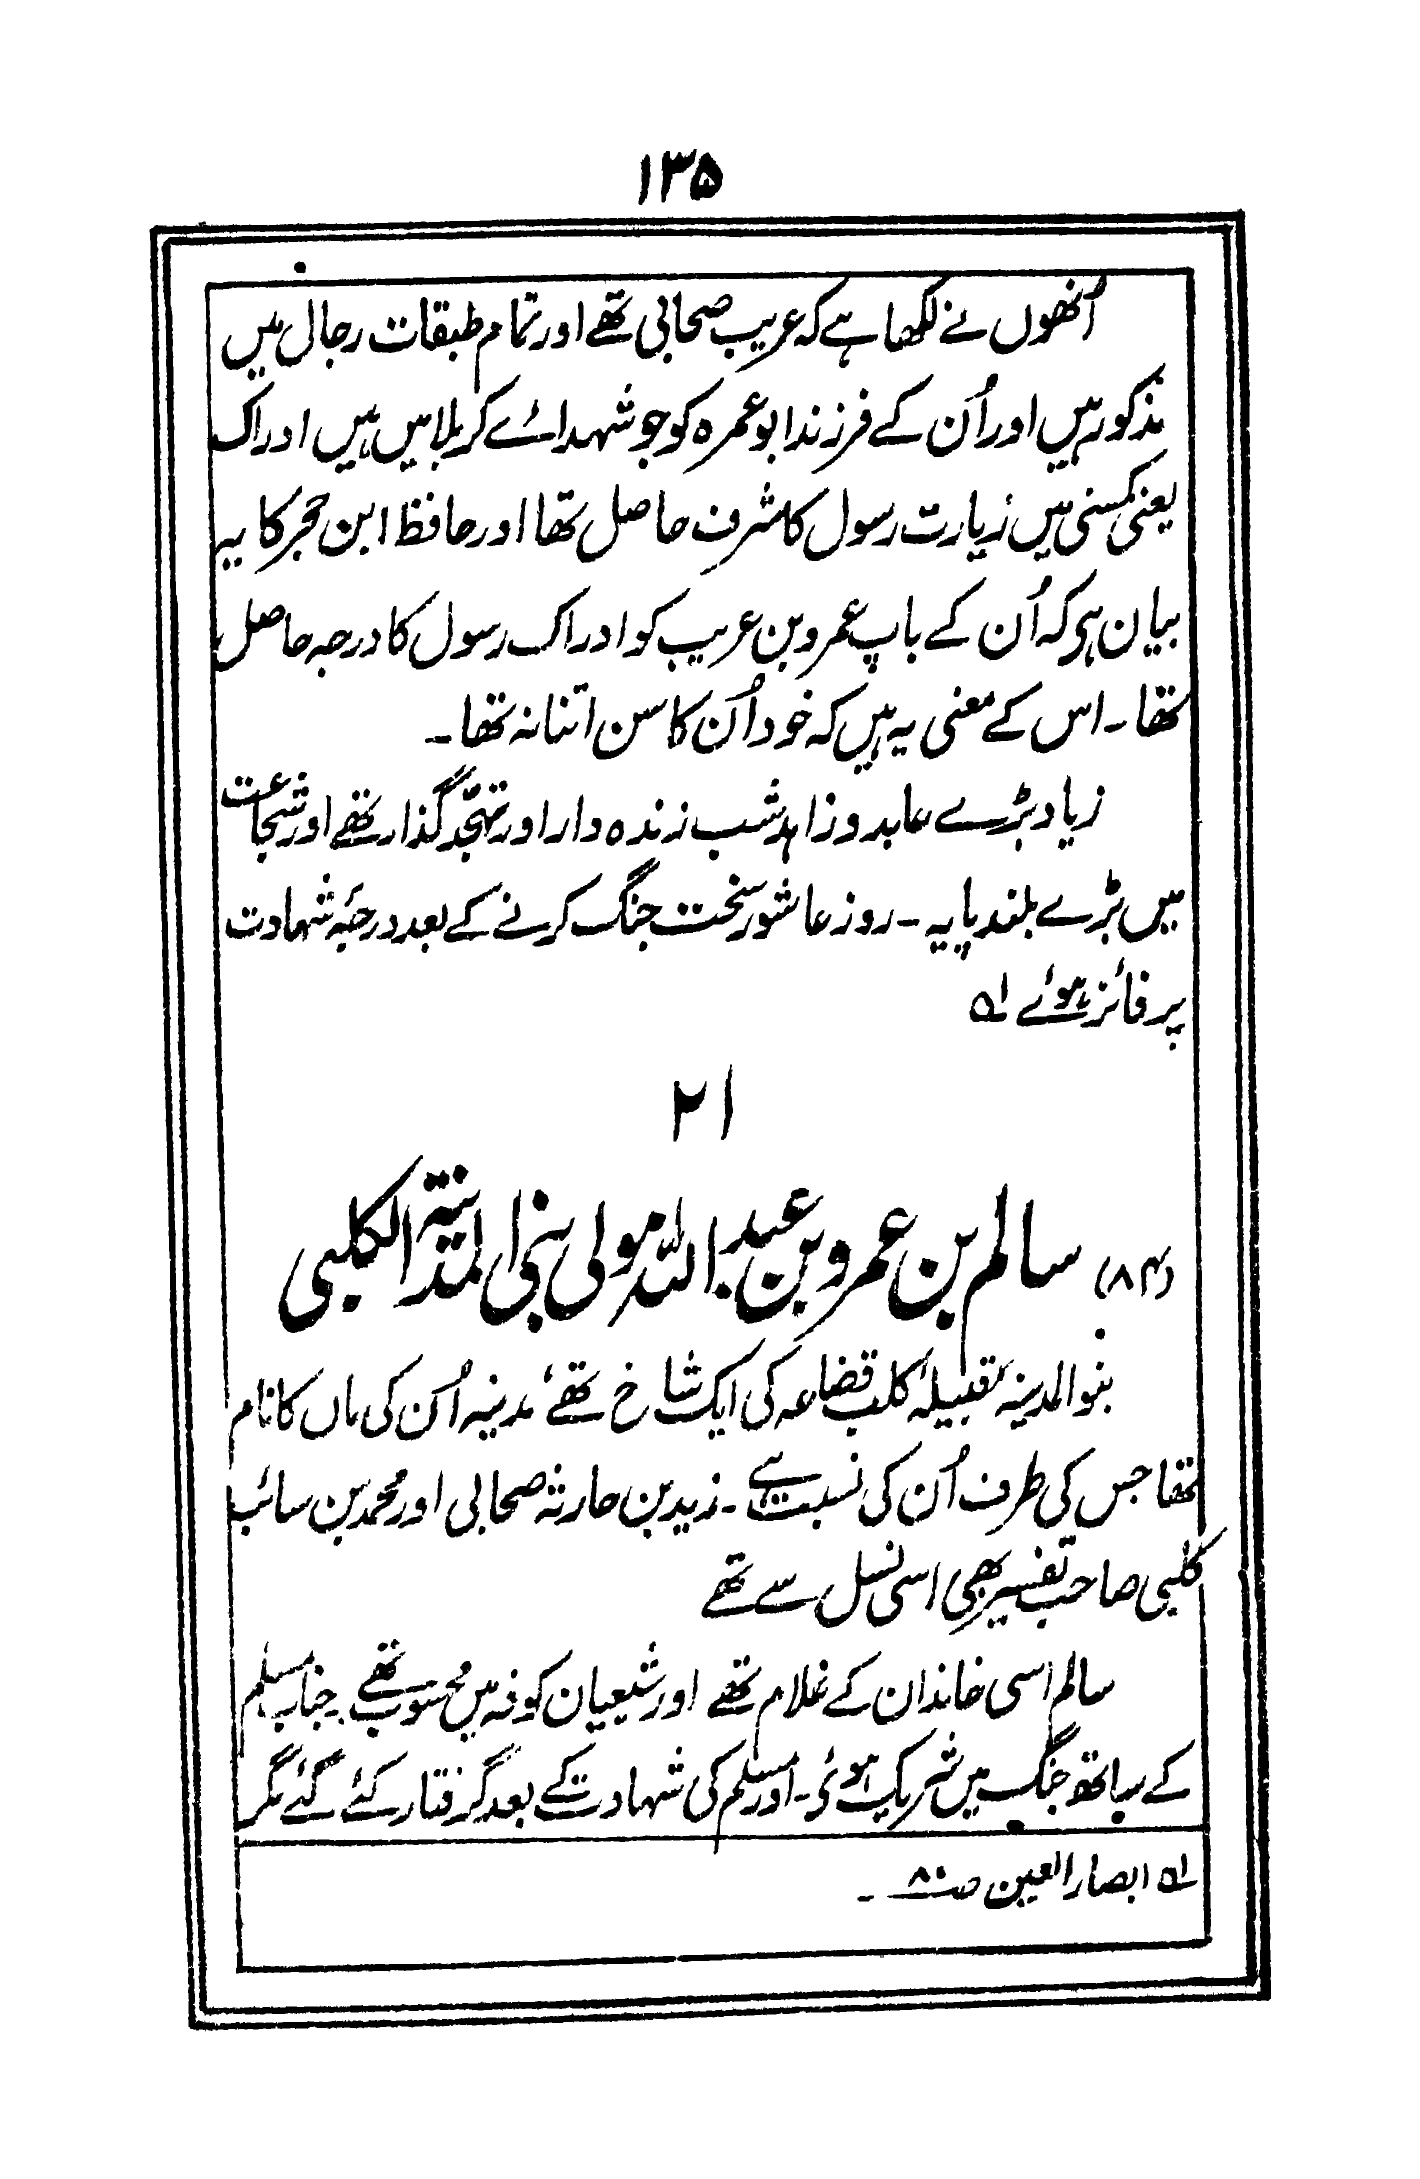 ۱۳۵
اُنھوں نے لکھا ہے کہ عریب صحابی تھے اور تمام طبقات رجال میں
مذکور ہیں اور اُن کے فرزند ابو عمرہ کو جو شہدائے کربلا میں ہیں ادراک
یعنی کمسنی میں زیارت رسول کا شرف حاصل تھا اور حافظ ابن حجر کا یہ
بیان ہی کہ اُن کے باپ عمرو بن عریب کو ادراک رسول کا درجہ حاصل
تھا۔ اس کے معنی یہ ہیں کہ خود اُن کا سن اتنا نہ تھا۔
زیاد بڑے عابد و زاہد شب زندہ دار اور تہجّد گذار تھے اور شجاعت
میں بڑے بلند پایہ۔ روز عاشور سخت جنگ کرنے کے بعد درجۂ شہادت
پر فائز ہوئے ؎۱
۲۱
(۸۴) سالم بن عمرو بن عبد اللہ مولی بنی المدینۃ الکلبی
بنو المدینہ قبیلۂ کلب قضاعہ کی ایک شاخ تھے، مدینہ اُن کی ماں کا نام
تھا جس کی طرف اُن کی نسبت ہے۔ زید بن حارثہ صحابی اور محمد بن سائب
کلبی صاحب تفسیر بھی اسی نسل سے تھے
سالم اسی خاندان کے غلام تھے اور شیعیان کوفہ میں محسوب تھے۔ جناب مسلم
کے ساتھ جنگ میں شریک ہوئے۔ اور مسلم کی شہادت کے بعد گرفتار کئے گئے مگر
؎۱ ابصار العین ص۸۰۔